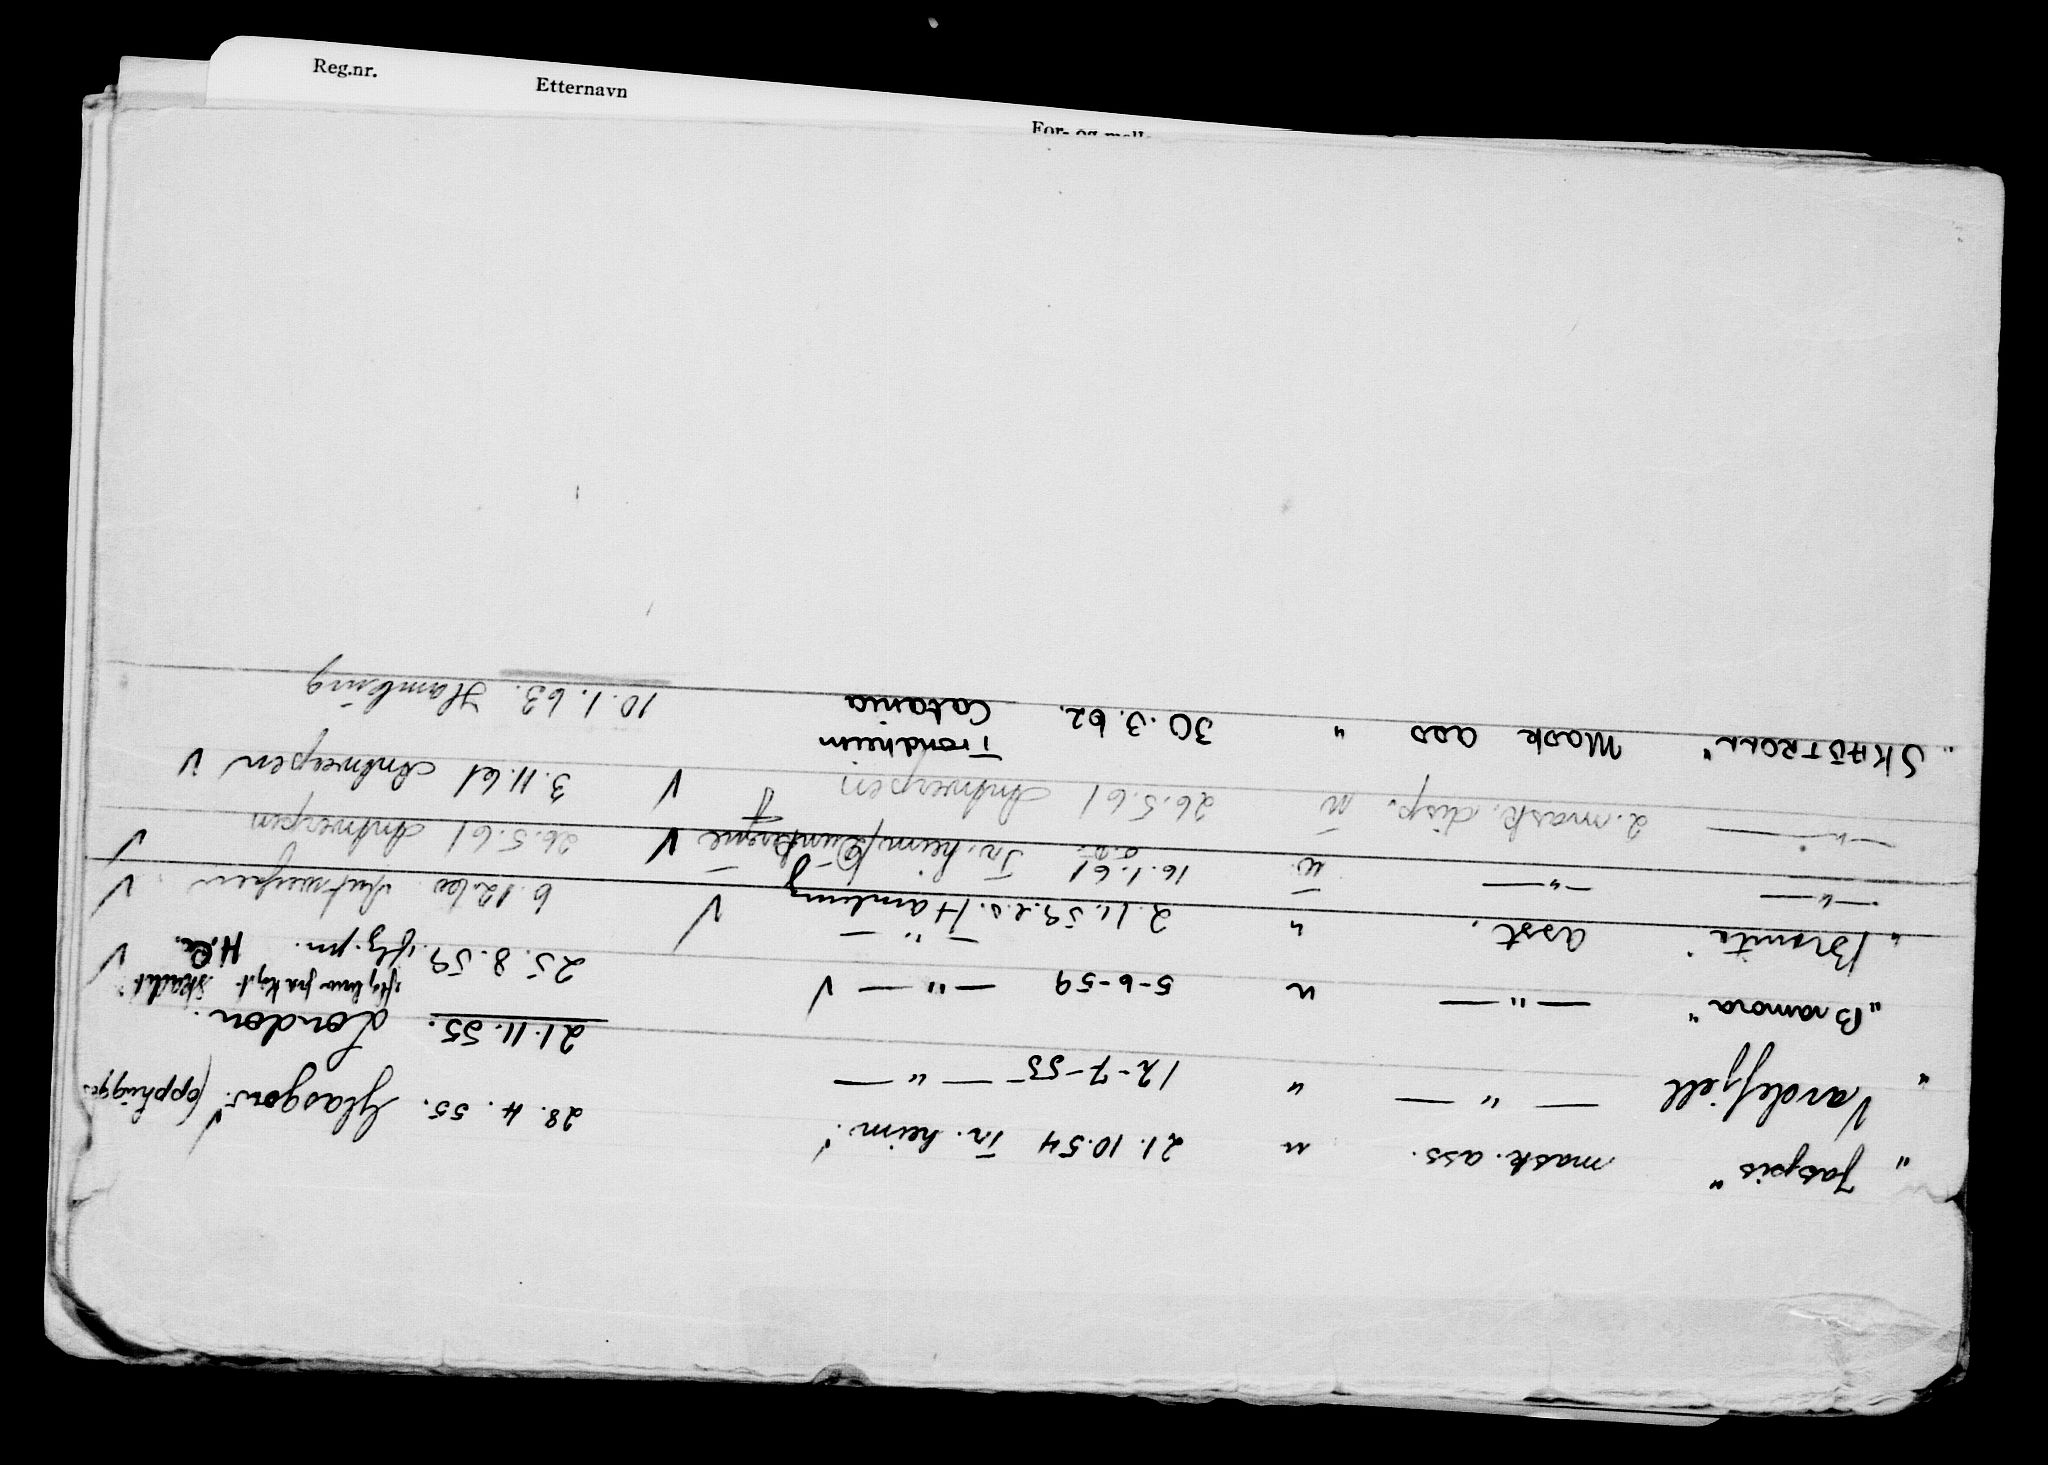 Reg.nr. Etternavn For- og mell
"Jaspis" mask. ass. " 21.10.54 Tr.heim. 28.4.55. Glasgow. (opphugges
" Vardefjell — " — " 12-7-55 — " — 21.11.55. London.
"Bramora" — " — " 5-6-59 — " — 25.8.59.
"Bronita" asst. " 2.11.59. Hamburg 6.12.60 Antwerpen
— " — — " — " 16.1.61 Tr.heim/Dunkerque 26.5.61 Antwerpen
— " — 2. mask. disp. " 26.5.61 Antwerpen 3.11.61 Antwerpen
"SKAUTROLL" Mask ass " 30.3.62. Trondheim Catania 10.1.63. Hamburg